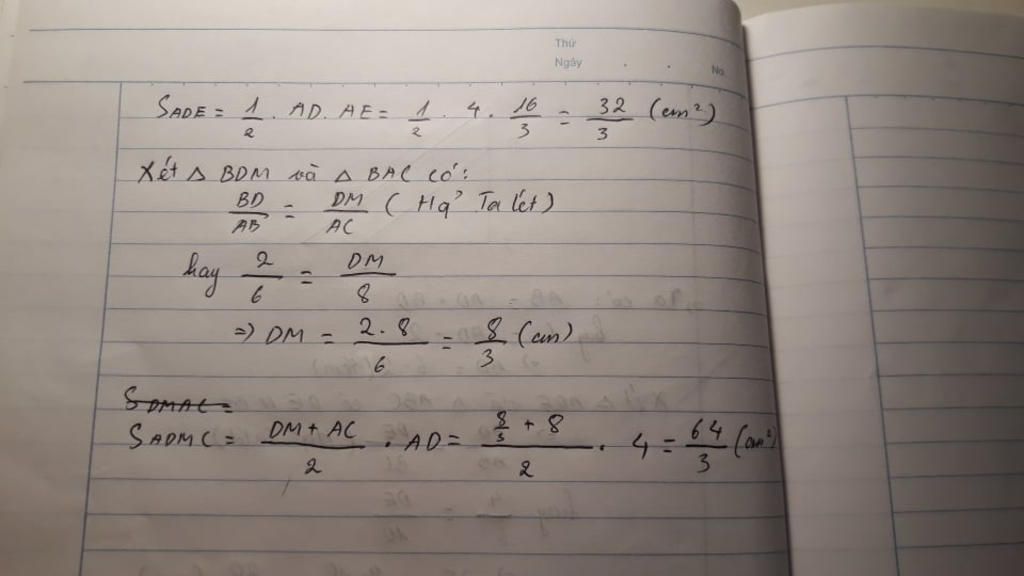 Thứ
Ngày . . No.
S_ADE = 1/2 . AD. AE = 1/2 . 4 . 16/3 = 32/3 (cm²)
Xét △ BDM và △ BAC có:
BD/AB = DM/AC ( Hq' Ta lét)
hay 2/6 = DM/8
=> DM = 2.8/6 = 8/3 (cm)
S_DMAC =
S_ADMC = DM + AC/2 . AD = 8/3 + 8/2 . 4 = 64/3 (cm²)